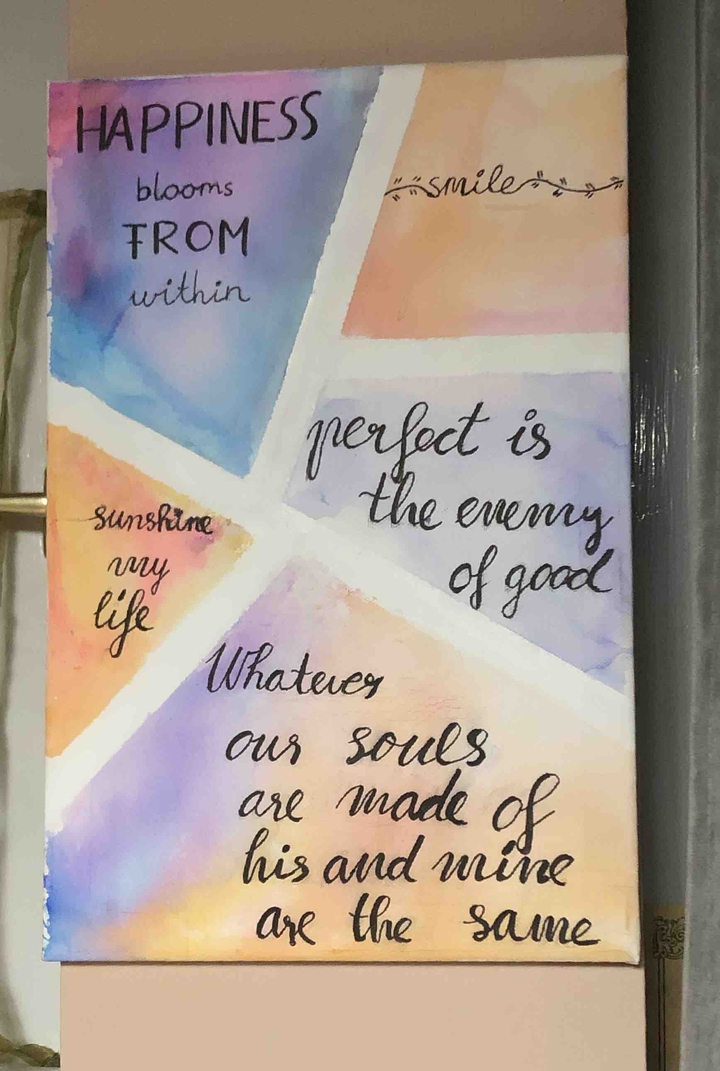 HAPPINESS
blooms
FROM
within
smile
perfect is
the enemy
of good
sunshine
my
life
Whatever
our souls
are made of
his and mine
are the same